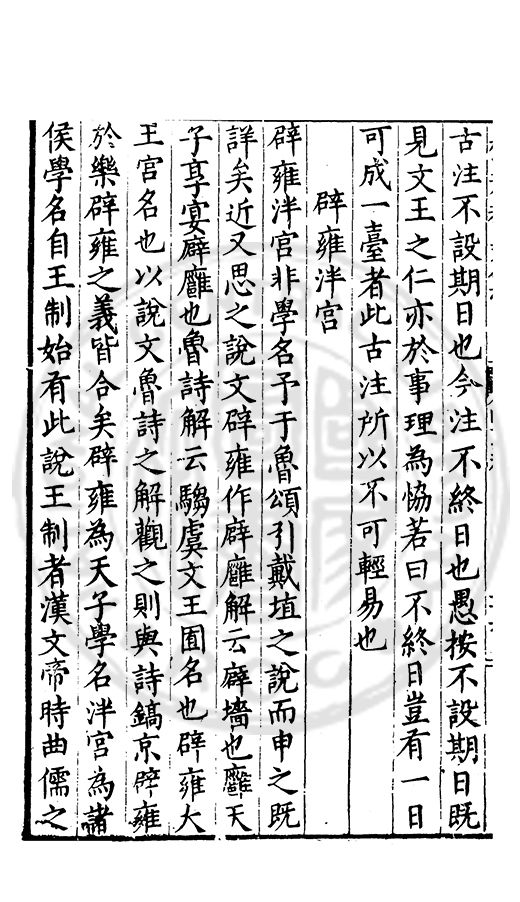 古注不設期日也今注不終日也愚按不設期日既
見文王之仁亦於事理為恊若曰不終日豈有一日
可成一臺者此古注所以不可輕易也
辟雍泮宮
辟雍泮宮非學名予于魯頌引戴埴之說而申之既
詳矣近又思之說文辟雍作廦廱解云廦墻也廱天
子享宴廦廱也魯詩解云騶虞文王囿名也辟雍大
王宮名也以說文魯詩之解觀之則與詩鎬京辟雍
於樂辟雍之義皆合矣辟雍為天子學名泮宮為諸
侯學名自王制始有此說王制者漢文帝時曲儒之